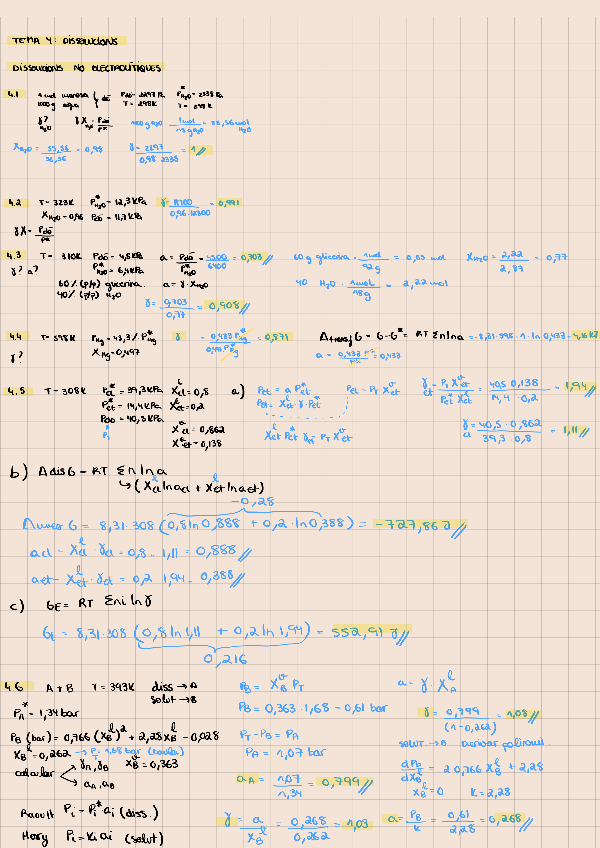 TEMA 4: DISSOLUCIONS
DISSOLUCIONS NO ELECTROLÍTIQUES
4.1 1 mol 1000g aigua T = 298K
γ? H2O
1000g H2O · 1mol / 18g H2O = 55,56 mol H2O
X H2O = 55,56 / 56,56 = 0,98 γ = 2297 / 0,98 · 2338 = 1
4.2 T = 323K P*H2O = 12,3 KPa γ = 11700 / 0,96·12300 = 0,991
X H2O = 0,96 Pdó = 11,7 KPa
γX = Pdó / P*
4.3 T = 310K Pdó = 4,5 KPa a = Pdó / P*H2O = 4500 / 6400 = 0,703 60 g glicerina · 1mol / 92g = 0,65 mol X H2O = 2,22 / 2,87 = 0,77
γ? a? P*H2O = 6,4 KPa
60% (p/p) glicerina a = γ · X H2O 40 H2O · 1mol / 18g = 2,22 mol
40% (p/p) H2O
γ = 0,703 / 0,77 = 0,908
4.4 T = 598K PHg = 43,3% P*Hg γ = 0,433 P*Hg / 0,497 P*Hg = 0,871 G - G* = RT Σn ln a = -8,31·598 · 1 · ln 0,433
γ? XHg = 0,497 a = 0,433 P* / P* = 0,433
4.5 T = 308K P*cl = 39,3 KPa X l cl = 0,8 a) Pet = a P*et Pet = PT X v γ et = PT X v et / P*et X l et = 40,5 · 0,138 / 14,4 · 0,2 = 1,94
P*et = 14,4 KPa X l et = 0,2 Pet = X l et γ · P*
Pdó = 40,5 KPa X v cl = 0,862 γ cl = 40,5 · 0,862 / 39,3 · 0,8 = 1,11
X v et = 0,138 X l et P*et γ = PT X v et
b) Δdis G = RT Σn ln a
↳ (Xcl ln acl + X l et ln aet)
-0,28
G = 8,31 · 308 (0,8 ln 0,888 + 0,2 · ln 0,388) = -727,86 J
acl = X l cl · γcl = 0,8 · 1,11 = 0,888
aet = X l et · γet = 0,2 · 1,94 = 0,388
c) GE = RT Σni ln γ
GE = 8,31·308 (0,8 ln 1,11 + 0,2 ln 1,94) = 552,91 J
0,216
4.6 A + B T = 393K diss → A PB = X v B PT a = γ · X l A
solut → B
P*A = 1,34 bar PB = 0,363 · 1,68 = 0,61 bar γ = 0,799 / (1 - 0,262) = 1,08
PB (bar) = 0,766 (X l B)² + 2,28 X l B - 0,028 PT - PB = PA solut → B derivar polinomi
X l B = 0,262 → PT = 1,68 bar (taula) PA = 1,07 bar dPB / dXB = 2 · 0,766 X l B + 2,28
calcular γA, γB X v B = 0,363 X l B = 0 K = 2,28
aA, aB aA = 1,07 / 1,34 = 0,799
Raoult Pi = Pi* ai (diss.) γ = a / X l B = 0,268 / 0,262 = 1,03 a = PB / K = 0,61 / 2,28 = 0,268
Henry Pi = Ki ai (solut)